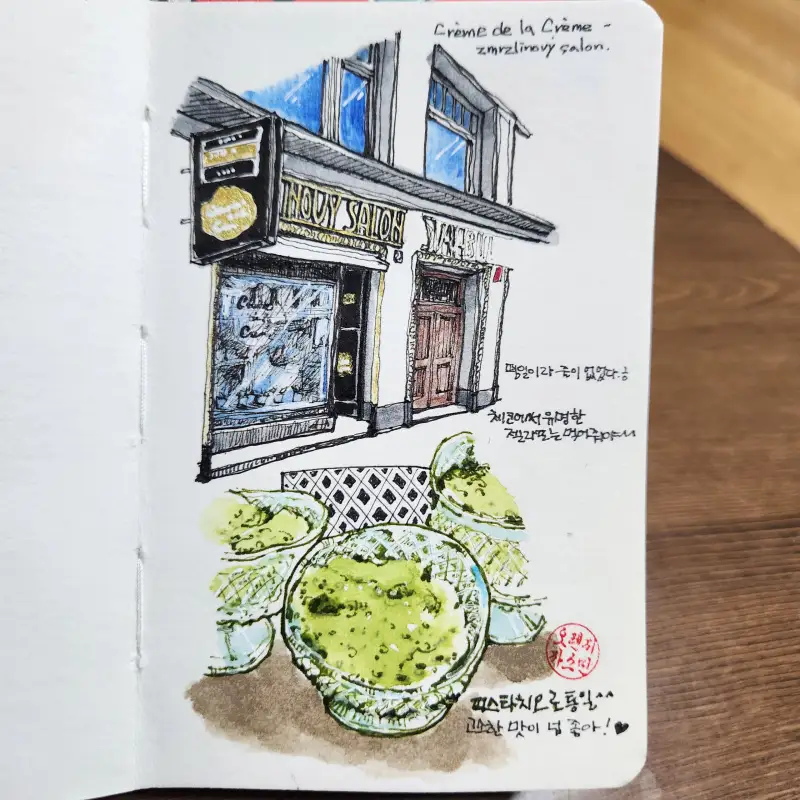 Crème de la Crème -
zmrzlinový salon.
INOVÝ SALON
평일이라 줄이 없었다.
체코에서 유명한
젤라또는 먹어줘야~~
오렌지
자스민
피스타치오로 통일^^
고소한 맛이 넘 좋아! ♥